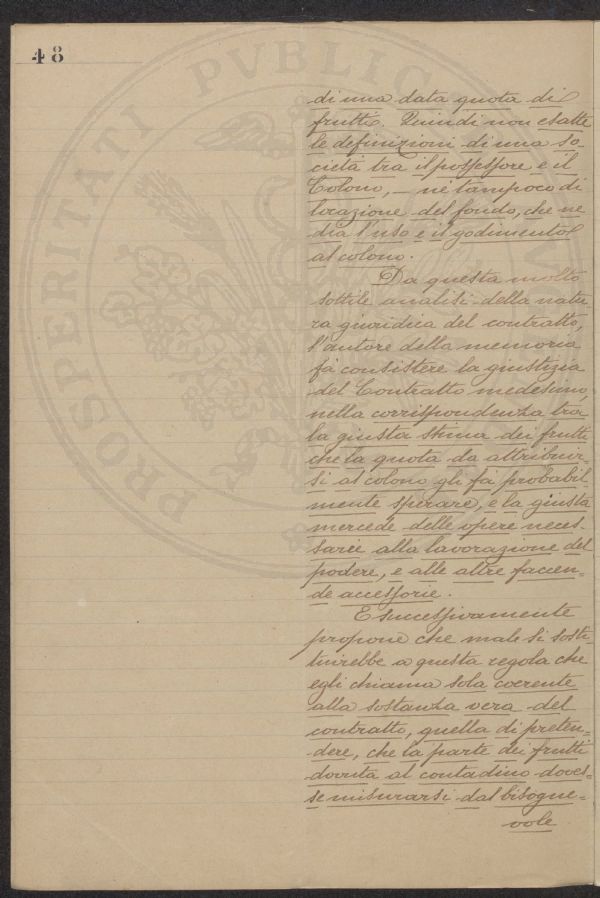 48
PROSPERITATI PVBLIC
di una data quota di
frutti. Quindi non esatte
le definizioni di una so-
cietà tra il possessore e il
Colono, – nè tampoco di
locazione del fondo, che ne
dia l'uso e il godimento
al colono.
Da questa molto
sottile analisi della natu-
ra giuridica del contratto,
l'autore della memoria
fa consistere la giustizia
del Contratto medesimo,
nella corrispondenza tra
la giusta stima dei frutti
che la quota da attribuir-
si al colono gli fa probabil-
mente sperare, e la giusta
mercede delle opere neces-
sarie alla lavorazione del
podere, e alle altre faccen=
de accessorie.
E successivamente
propone che male si sosti-
tuirebbe a questa regola che
egli chiama sola coerente
alla sostanza vera del
contratto, quella di preten=
dere, che la parte dei frutti
dovuta al contadino doves=
se misurarsi dal bisogne=
vole